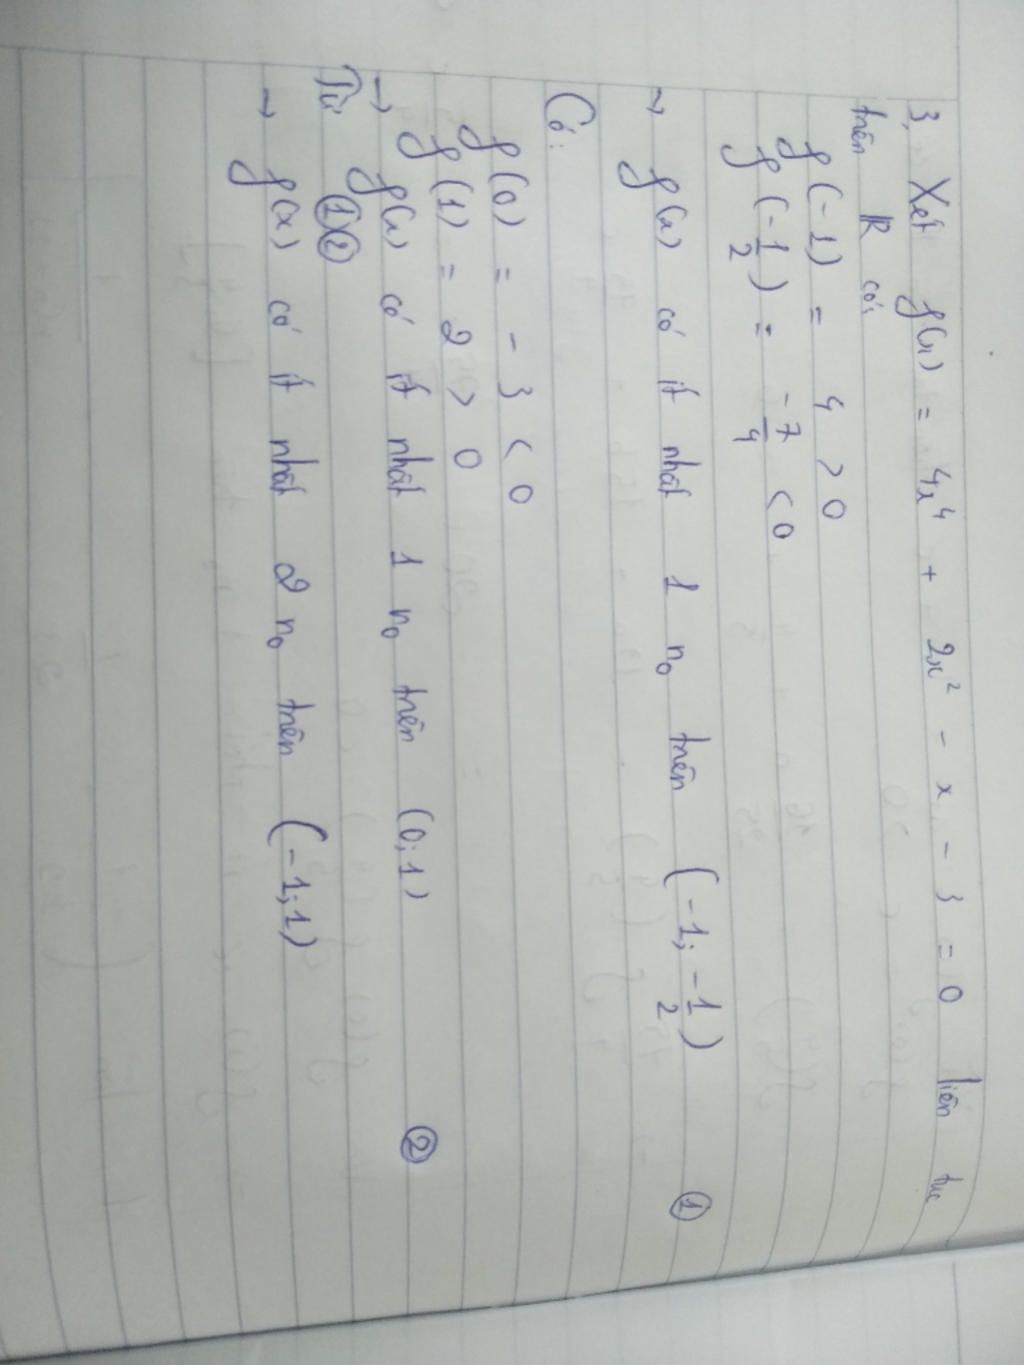 3, Xét f(x) = 4x⁴ + 2x² - x - 3 = 0 liên tục
trên R có:
f(-1) = 4 > 0
f(-1/2) = -7/4 < 0
→ f(x) có ít nhất 1 n₀ trên (-1; -1/2) ①
Có:
f(0) = - 3 < 0
f(1) = 2 > 0
→ f(x) có ít nhất 1 n₀ trên (0; 1) ②
Từ ①②
→ f(x) có ít nhất 2 n₀ trên (-1; 1)